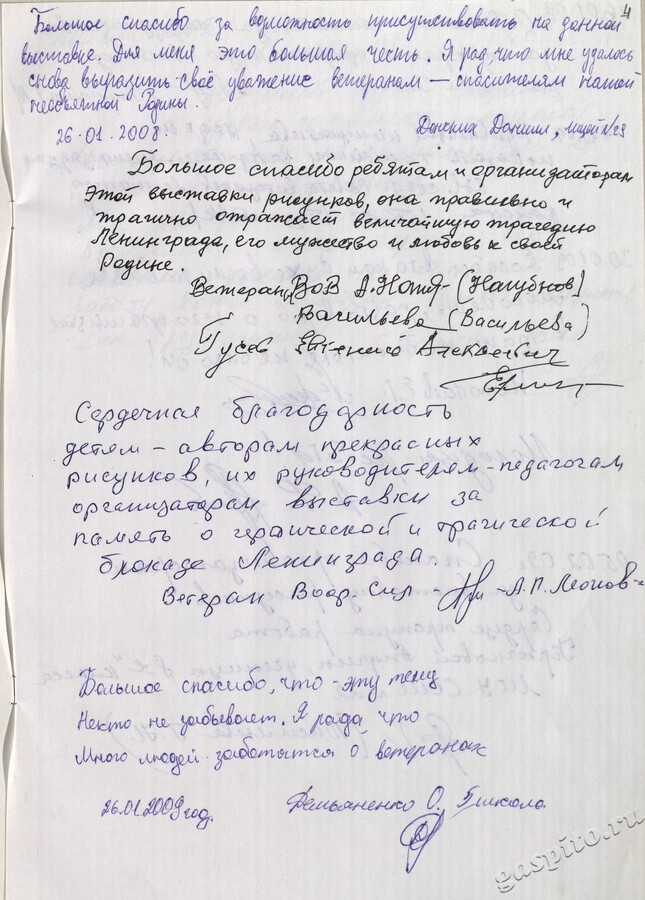 4
Большое спасибо за возможность присутствовать на данной
выставке. Для меня это большая честь. Я рад, что мне удалось
снова выразить своё уважение ветеранам — спасителям нашей
необъятной Родины.
26.01.2008. Даниил, лицей №28
Большое спасибо ребятам и организаторам
этой выставки рисунков, она правильно и
трагично отражает величайшую трагедию
Ленинграда, его мужество и любовь к своей
Родине.
Ветераны ВОВ
Васильева (Васильева)
Гусев Евгений Алексеевич
Сердечная благодарность
детям – авторам прекрасных
рисунков, их руководителям-педагогам
организаторам выставки за
память о героической и трагической
блокаде Ленинграда
Ветеран Воор. Сил - А.П. Леонов
Большое спасибо, что эту тему
Некто не забывает. Я рада что
Много людей заботятся о ветеранах
26.01.2009 год. Демьяненко О. школа
gaspito.ru